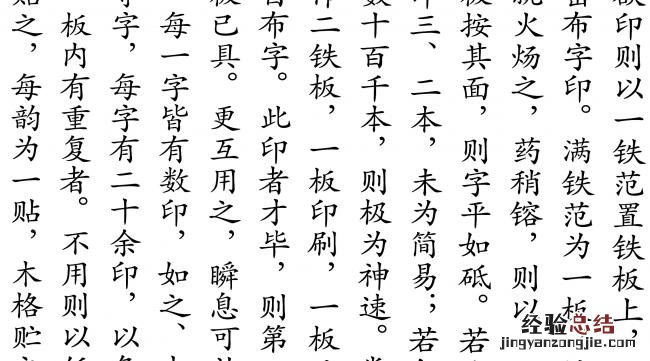 欲印则以一铁范置铁板上,
密布字印。满铁范为一板
就火炀之,药稍镕,则以
板按其面,则字平如砥。若
印三、二本,未为简易;若
数十百千本,则极为神速。
作二铁板,一板印刷,一板
自布字。此印者才毕,则第
板已具。更互用之,瞬息可
每一字皆有数印,如之、
等字,每字有二十余印,以
板内有重复者。不用则以
贴之,每韵为一贴,木格贮
经验总结
jingyanzongjie.com